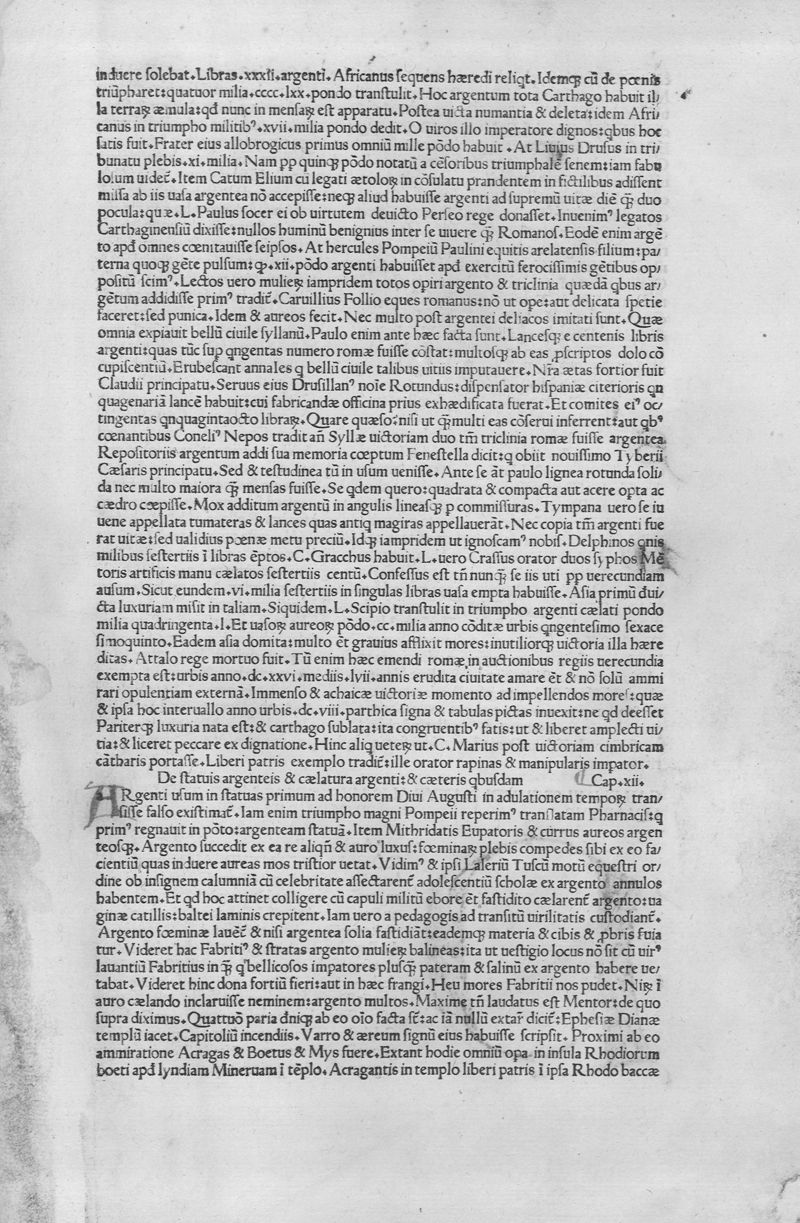 induere solebat. Libras. xxxii. argenti. Africanus sequens hæredi reliqt. Idemqꝫ cū de pœnis
triūpharet: quatuor milia. cccc. lxx. pondo transtulit. Hoc argentum tota Carthago habuit il/
la terraꝝ æmula: qd nunc in mensaꝝ est apparatu. Postea uicta numantia & deleta: idem Afri/
canus in triumpho militibꝰ. xvii. milia pondo dedit. O uiros illo imperatore dignos: qbus hoc
satis fuit. Frater eius allobrogicus primus omniū mille pōdo habuit. At Liuius Drusus in tri/
bunatu plebis. xi. milia. Nam pp quinqꝫ pondo notatū a cēsoribus triumphalē senem: iam fabu
losum uideť. Item Catum Elium cū legati ætoloꝝ in cōsulatu prandentem in fictilibus adissent
missa ab iis uasa argentea nō accepisse: neqꝫ aliud habuisse argenti ad supremū uitæ diē qꝫ duo
pocula: quæ. L. Paulus socer ei ob uirtutem deuicto Perseo rege donasset. Inuenimꝰ legatos
Carthaginensiū dixisse: nullos hominū benignius inter se uiuere qꝫ Romanos. Eodē enim argē
to apd omnes cœnitauisse seipsos. At hercules Pompeiū Paulini equitis arelatensis filium: pa/
terna quoqꝫ gēte pulsum: ꝙ. xii. pōdo argenti habuisset apd exercitū ferocissimis gētibus op/
positū scimꝰ. Lectos uero mulieꝝ iampridem totos opiri argento & triclinia quædā qbus ar/
gētum addidisse primꝰ tradiť. Caruillius Follio eques romanus: nō ut ope: aut delicata spetie
faceret: sed punica. Idem & aureos fecit. Nec multo post argentei deliacos imitati sunt. Quæ
omnia expiauit bellū ciuile syllanū. Paulo enim ante hæc facta sunt. Lancesqꝫ e centenis libris
argenti: quas tūc sup qngentas numero romæ fuisse cōstat: multosqꝫ ab eas ꝓscriptos dolo cō
cupiscentiū. Erubescant annales q bellū ciuile talibus uitiis imputauere. Nr̄a ætas fortior fuit
Claudii principatu. Seruus eius Drusillanꝰ noīe Rotundus: dispensator hispaniæ citerioris qn
quagenariā lancē habuit: cui fabricandæ officina prius exhædificata fuerat. Et comites eiꝰ oc/
tingentas qnquagintaocto libraꝝ. Quare quæso: nisi ut qꝫmulti eas cōserui inferrent: aut qbꝰ
cœnantibus Coneliꝰ Nepos tradit an̄ Syllæ uictoriam duo tm̄ triclinia romæ fuisse argentea.
Repositoriis argentum addi sua memoria cœptum Fenestella dicit: q obiit nouissimo Tyberii
Cæsaris principatu. Sed & testudinea tū in usum uenisse. Ante se āt paulo lignea rotunda soli/
da nec multo maiora qꝫ mensas fuisse. Se qdem quero: quadrata & compacta aut acere opta ac
cædro cœpisse. Mox additum argentū in angulis lineasqꝫ p commissuras. Tympana uero se iu
uene appellata tumateras & lances quas antiq magiras appellauerāt. Nec copia tm̄ argenti fue
rat uitæ: sed ualidius pœnæ metu preciū. Idqꝫ iampridem ut ignoscamꝰ nobis. Delphinos qnis
milibus sestertiis ī libras ēptos. C. Gracchus habuit. L. uero Crassus orator duos syphos Mē
toris artificis manu cælatos sestertiis centū. Confessus est tn̄ nunqꝫ se iis uti pp uerecundiam
ausum. Sicut eundem. vi. milia sestertiis in singulas libras uasa empta habuisse. Asia primū dui/
cta luxuriam misit in taliam. Siquidem. L. Scipio transtulit in triumpho argenti cælati pondo
milia quadringenta. l. Et uasoꝝ aureoꝝ pōdo. cc. milia anno cōditæ urbis qngentesimo sexace
simoquinto. Eadem asia domita: multo ēt grauius afflixit mores: inutiliorqꝫ uictoria illa hære
ditas. Attalo rege mortuo fuit. Tū enim hæc emendi romæ in auctionibus regiis uerecundia
exempta est: urbis anno. dc. xxvi. mediis. lvii. annis erudita ciuitate amare ēt & nō solū ammi
rari opulentiam externā. Immenso & achaicæ uictoriæ momento ad impellendos mores: quæ
& ipsa hoc interuallo anno urbis. dc. viii. parthica signa & tabulas pictas inuexit: ne qd deesset
Pariterqꝫ luxuria nata est: & carthago sublata: ita congruentibꝰ fatis: ut & liberet amplecti ui/
tia: & liceret peccare ex dignatione. Hinc aliq ueteꝝ ut. C. Marius post uictoriam cimbricam
cātharis portasse. Liberi patris exemplo tradiť: ille orator rapinas & manipularis impator.
De statuis argenteis & cælatura argenti: & cæteris qbusdam Cap. xii.
ARgenti usum in statuas primum ad honorem Diui Augusti in adulationem tempoꝝ tran/
sisse falso existimať. Iam enim triumpho magni Pompeii reperimꝰ translatam Pharnacis: q
primꝰ regnauit in pōto: argenteam statuā. Item Mithridatis Eupatoris & currus aureos argen
teosqꝫ. Argento succedit ex ea re aliqn̄ & auro luxus: fœminaꝝ plebis compedes sibi ex eo fa/
cientiū quas induere aureas mos tristior uetat. Vidimꝰ & ipsi Laleriū Tuscū motū equestri or/
dine ob insignem calumniā cū celebritate affectarenť adolescentiū scholæ ex argento annulos
habentem. Et qd hoc attinet colligere cū capuli militū ebore ēt fastidito cælarenť argento: ua
ginæ catillis: baltei laminis crepitent. Iam uero a pedagogis ad transitū uirilitatis custodianť.
Argento fœminæ lauenť & nisi argentea solia fastidiāt: eademqꝫ materia & cibis & ꝓbris fuia
tur. Videret hac Fabritiꝰ & stratas argento mulieꝝ balineas: ita ut uestigio locus nō sit cū uirꝰ
lauantiū Fabritius in qꝫ q bellicosos impatores plusqꝫ pateram & salinū ex argento habere ue/
tabat. Videret hinc dona fortiū fieri: aut in hæc frangi. Heu mores Fabritii nos pudet. Niꝝ ī
auro cælando inclaruisse neminem: argento multos. Maxime tn̄ laudatus est Mentor: de quo
supra diximus. Quattuor paria dniqꝫ ab eo oīo facta st̄: ac iā nullū extar̄ diciť: Ephesiæ Dianæ
templū iacet. Capitoliū incendiis. Varro & æreum signū eius habuisse scripsit. Proximi ab eo
ammiratione Acragas & Boetus & Mys fuere. Extant hodie omniū opa in insula Rhodiorum
boeti apd lyndiam Mineruam ī tēplo. Acragantis in templo liberi patris ī ipsa Rhodo baccæ